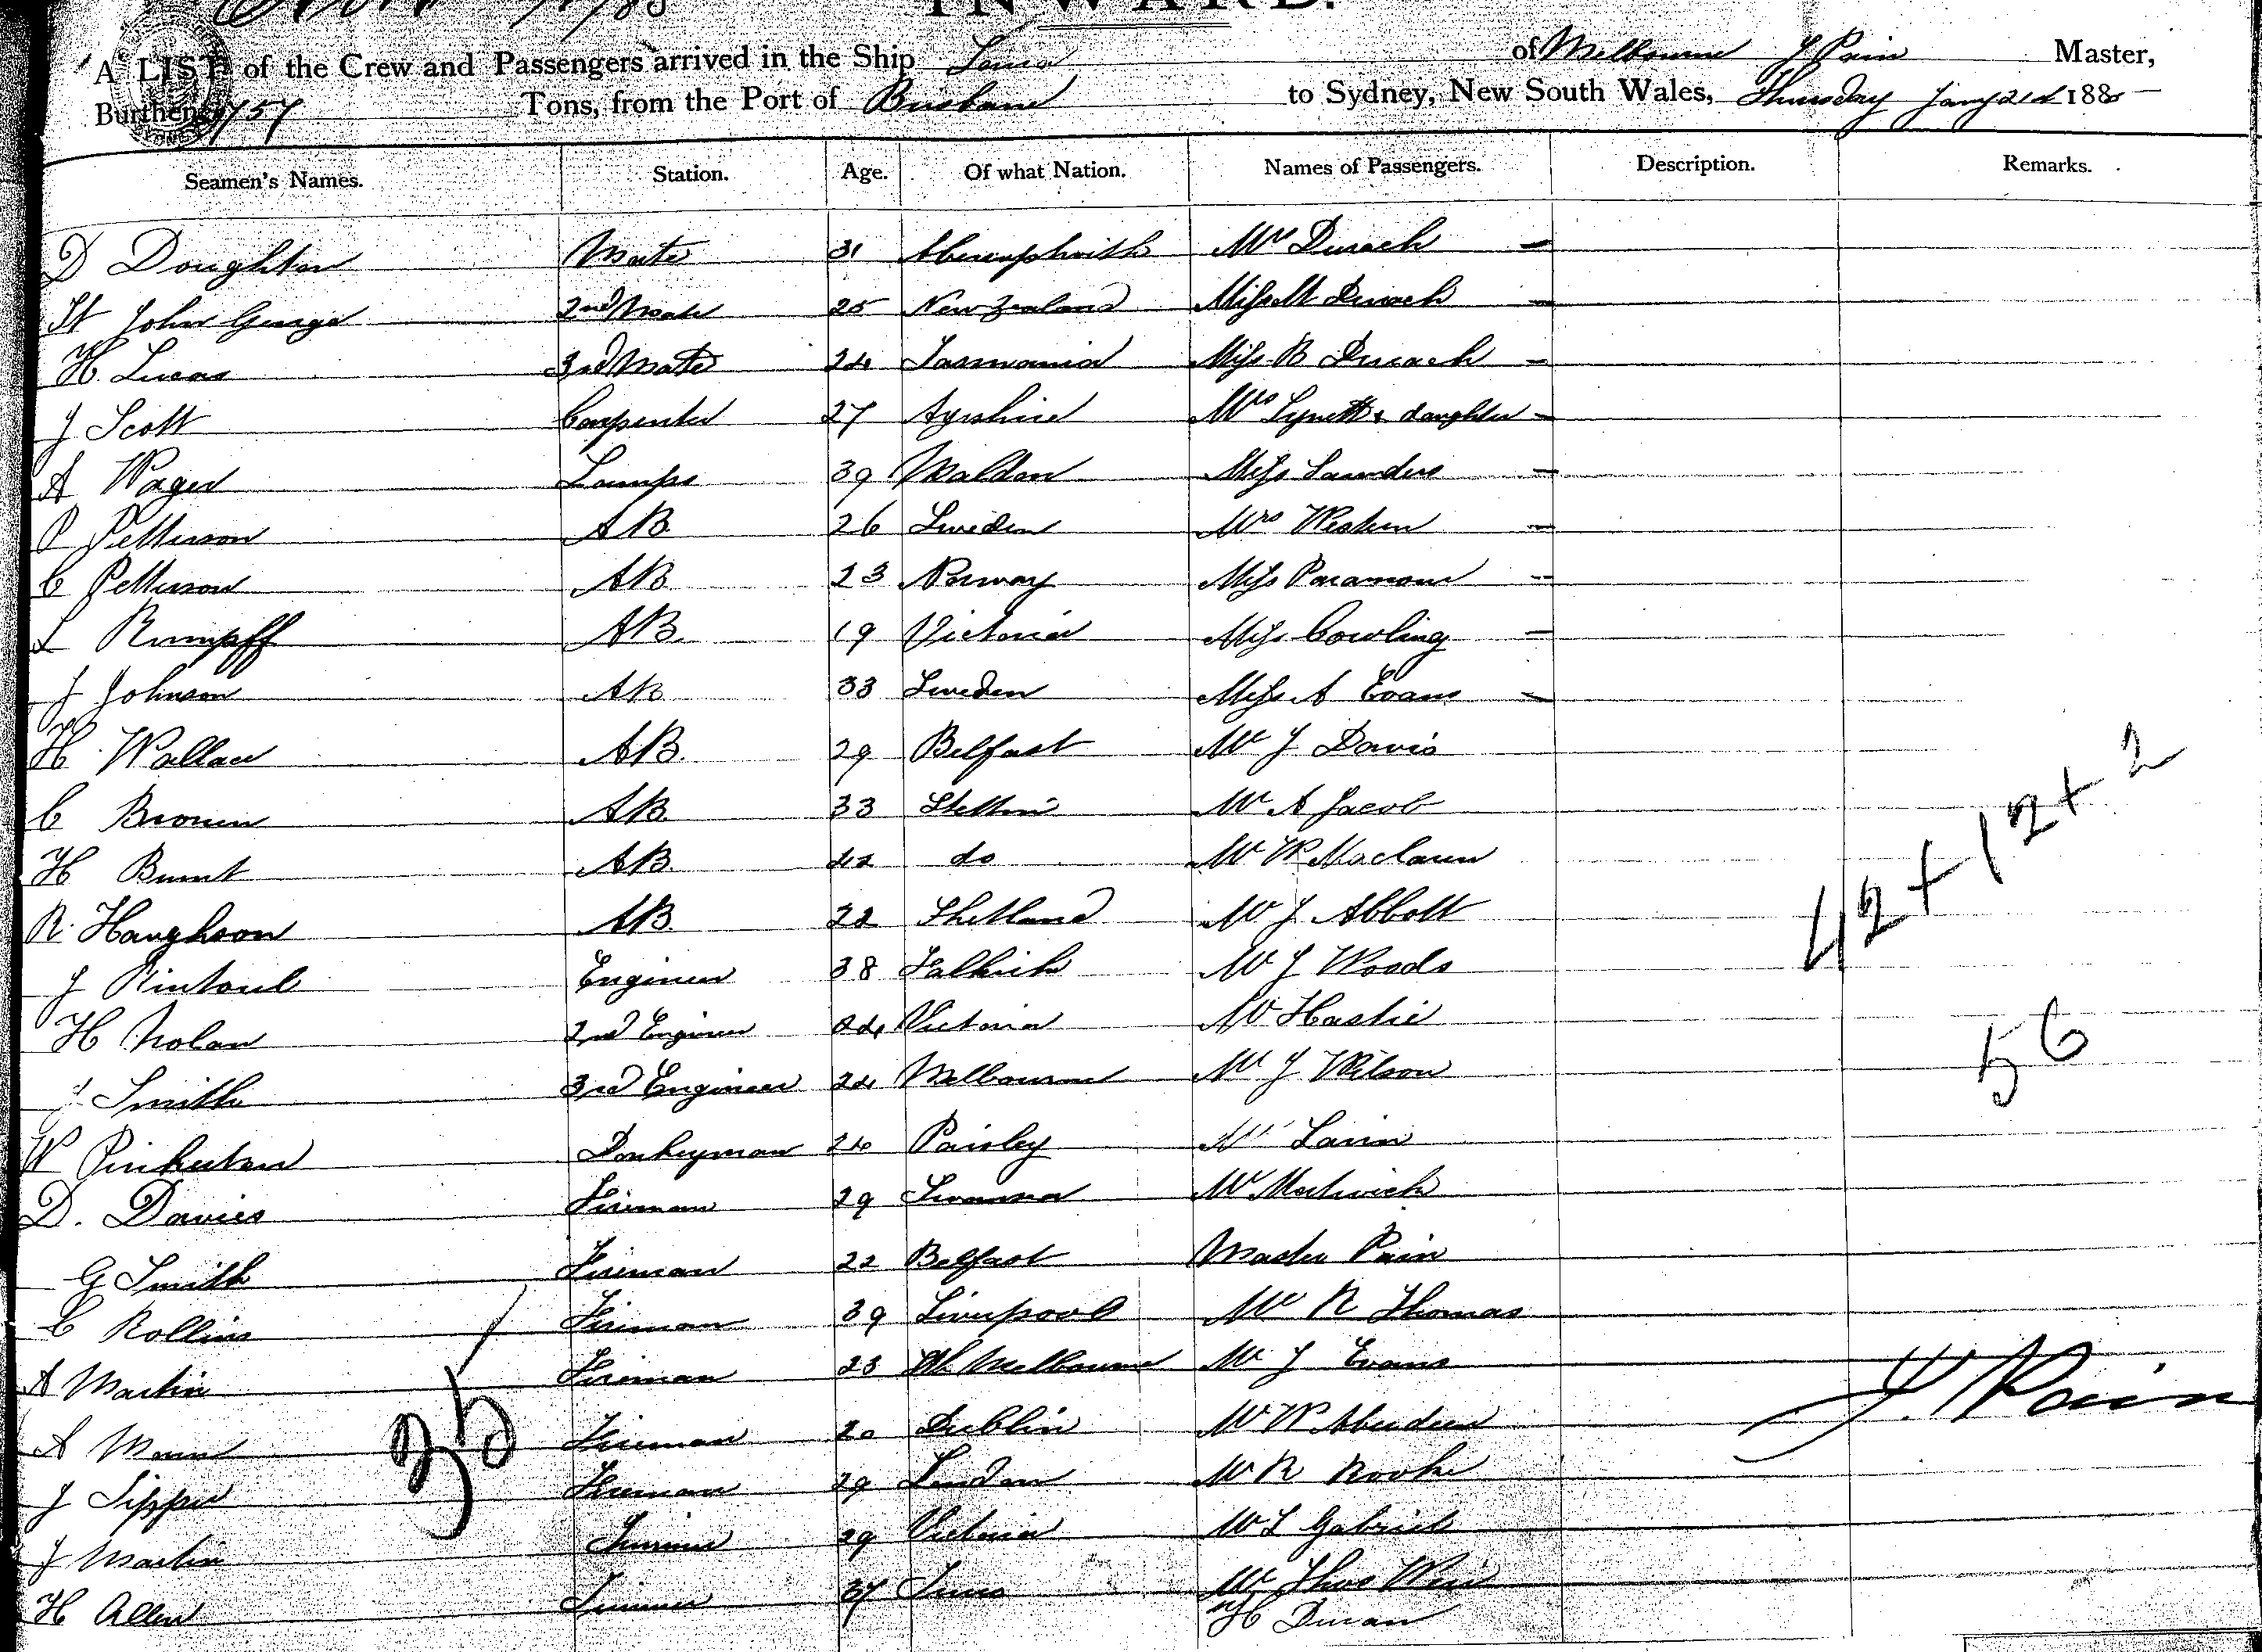 INWARD.
A LIST of the Crew and Passengers arrived in the Ship of Melbourne J Pain Master,
Burthen 757 Tons, from the Port of Brisbane to Sydney, New South Wales, Thursday Jany 188
Seamen's Names. Station. Age. Of what Nation. Names of Passengers. Description. Remarks.
D Doughton Mate 31 Mrs Durack
St John George 2nd Mate 25 New Zealand Miss M Durack
H. Lucas 3rd Mate 24 Tasmania Miss B Durack
J Scott Carpenter 27 Ayrshire Mrs & daughter
A Wager Lamps 39 Maldon Miss Saunders
P Petterson AB 26 Sweden Mrs
C Petterson AB 23 Norway Miss
L Rumpff AB 19 Victoria Miss Cowling
J Johnson AB 33 Sweden Miss A Evans
H Wallace AB 29 Belfast Mr J Davis
C Brown AB 33 Stettin Mr A Jacob
H AB 42 do Mr W Maclaren
R. Haughson AB 22 Shetland Mr J Abbott
J Rintoul Engineer 38 Falkirk Mr J Woods
H Nolan 2nd Engineer Victoria Mr Hastie
J Smith 3rd Engineer 24 Melbourne Mr J Wilson
W Pinkerton Donkeyman 24 Paisley Mr
D. Davies Fireman 29 Swansea Mr
G Smith Fireman 22 Belfast Master Pain
C Rollins Fireman 39 Liverpool Mr R Thomas
A Martin Fireman 23 Melbourne Mr J Evans
A Mann Fireman 20 Dublin Mr W Aberdeen
J Fireman 29 London Mr R
J Martin Trimmer 29 Victoria Mr L Gabriel
H Allen Trimmer 37 Mr Thos Weir
H
42 + 12 + 2
56
35
J. Pain